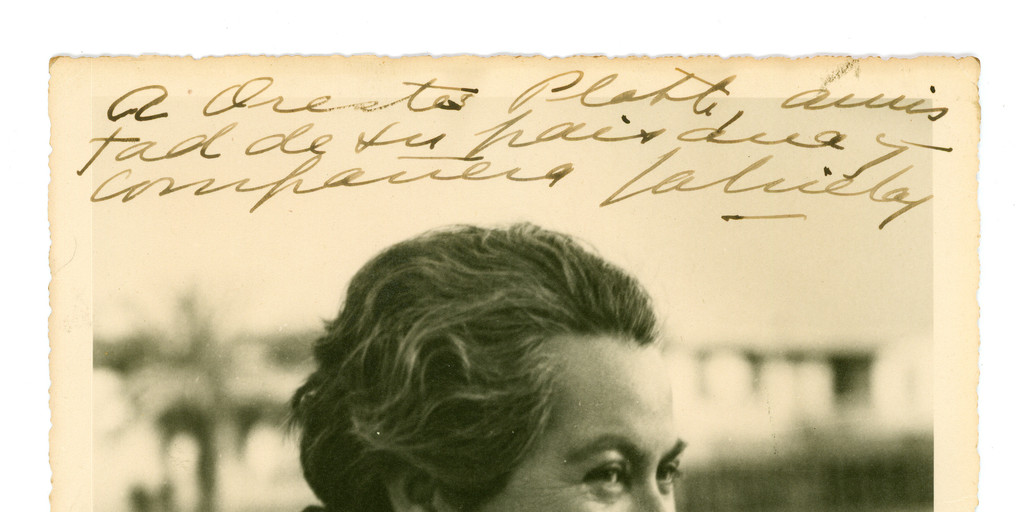 A Oreste Plath, amis
tad de su paisana y
compañera Gabriela